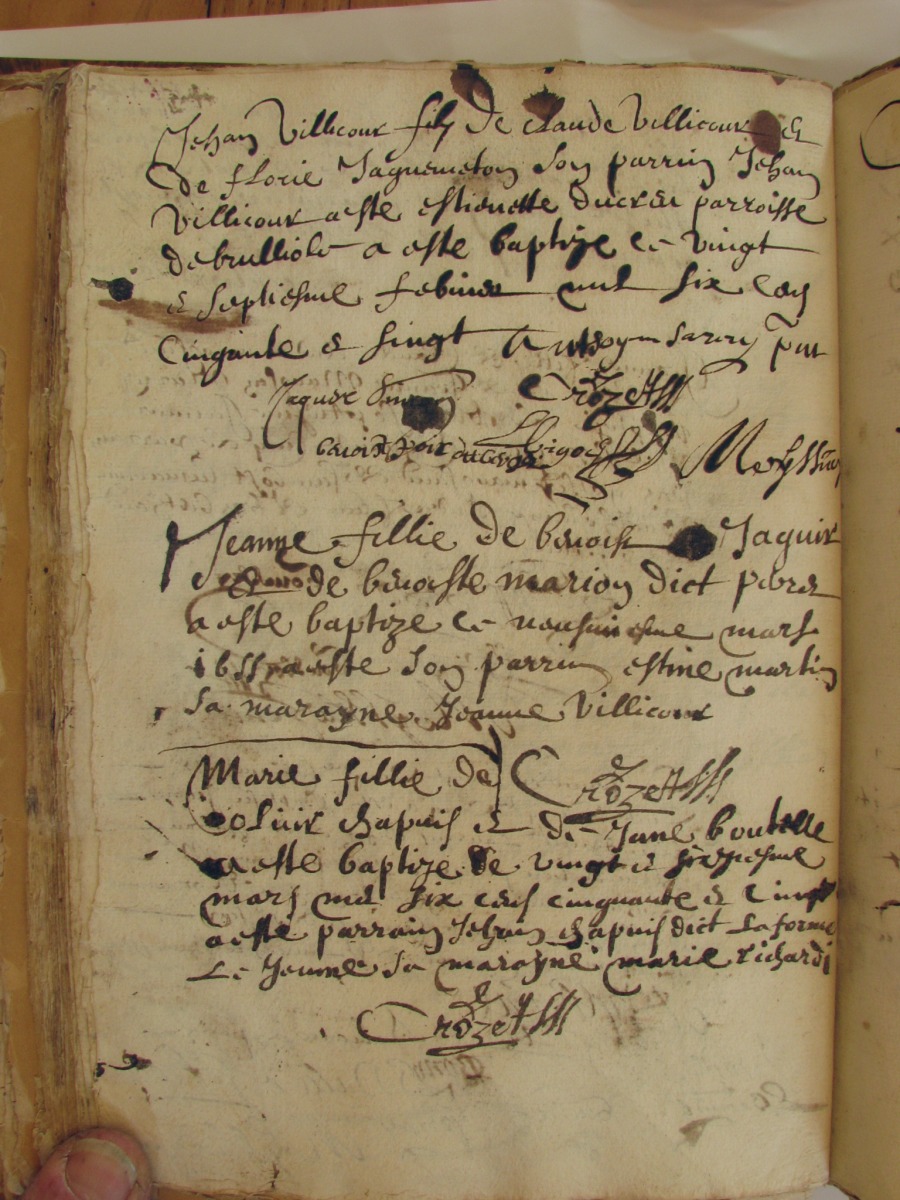 Jehan Villicour filz de claude Villicour et
de florie Jaquemeton son parrin Jehan
Villicour a este estienette ducreu parroisse
de brulliole a este baptize le vingt
et septiesme febvrier mil six cens
Cinqante et singt
Jaques
Crozet
benoist
Jeanne fillie de benoist Jaquir
de benoiste marion dict
a este baptize le neufviesme mars
1655 a este son parrin estine martin
sa marayne Jeanne Villicour
Marie fillie de Crozet
chapuis et de Jane boutelle
a este baptize le vingt et sixziesme
mars mil six cens cinquante et Cinq
a este parrain Jehan chapuis dict laforme
Le Jeunne sa marayne marie richard
Crozet